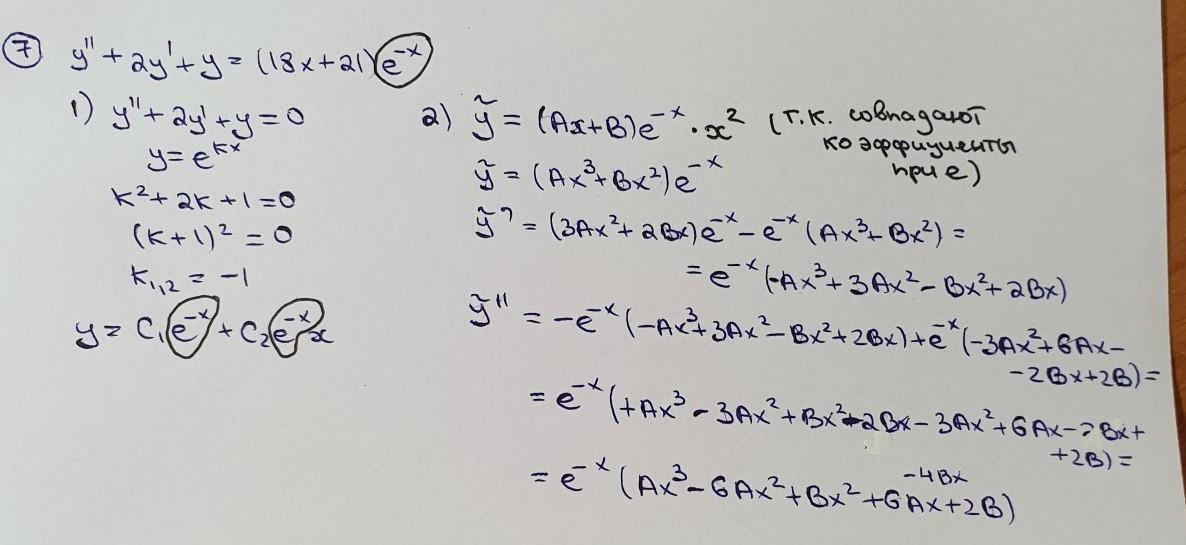 ⑦ y'' + 2y' + y = (18x+21)e^{-x}
1) y'' + 2y' + y = 0
y = e^{kx}
k² + 2k + 1 = 0
(k+1)² = 0
k_{1,2} = -1
y = C₁e^{-x} + C₂e^{-x}x
2) ỹ = (Ax+B)e^{-x} · x² (т.к. совпадают
коэффициенты
при e)
ỹ = (Ax³+Bx²)e^{-x}
ỹ' = (3Ax²+2Bx)e^{-x} - e^{-x}(Ax³+Bx²) =
= e^{-x}(-Ax³+3Ax²-Bx²+2Bx)
ỹ'' = -e^{-x}(-Ax³+3Ax²-Bx²+2Bx)+e^{-x}(-3Ax²+6Ax-
-2Bx+2B)=
= e^{-x}(+Ax³-3Ax²+Bx²-2Bx-3Ax²+6Ax-2Bx+
+2B)=
= e^{-x}(Ax³-6Ax²+Bx²+6Ax-4Bx+2B)